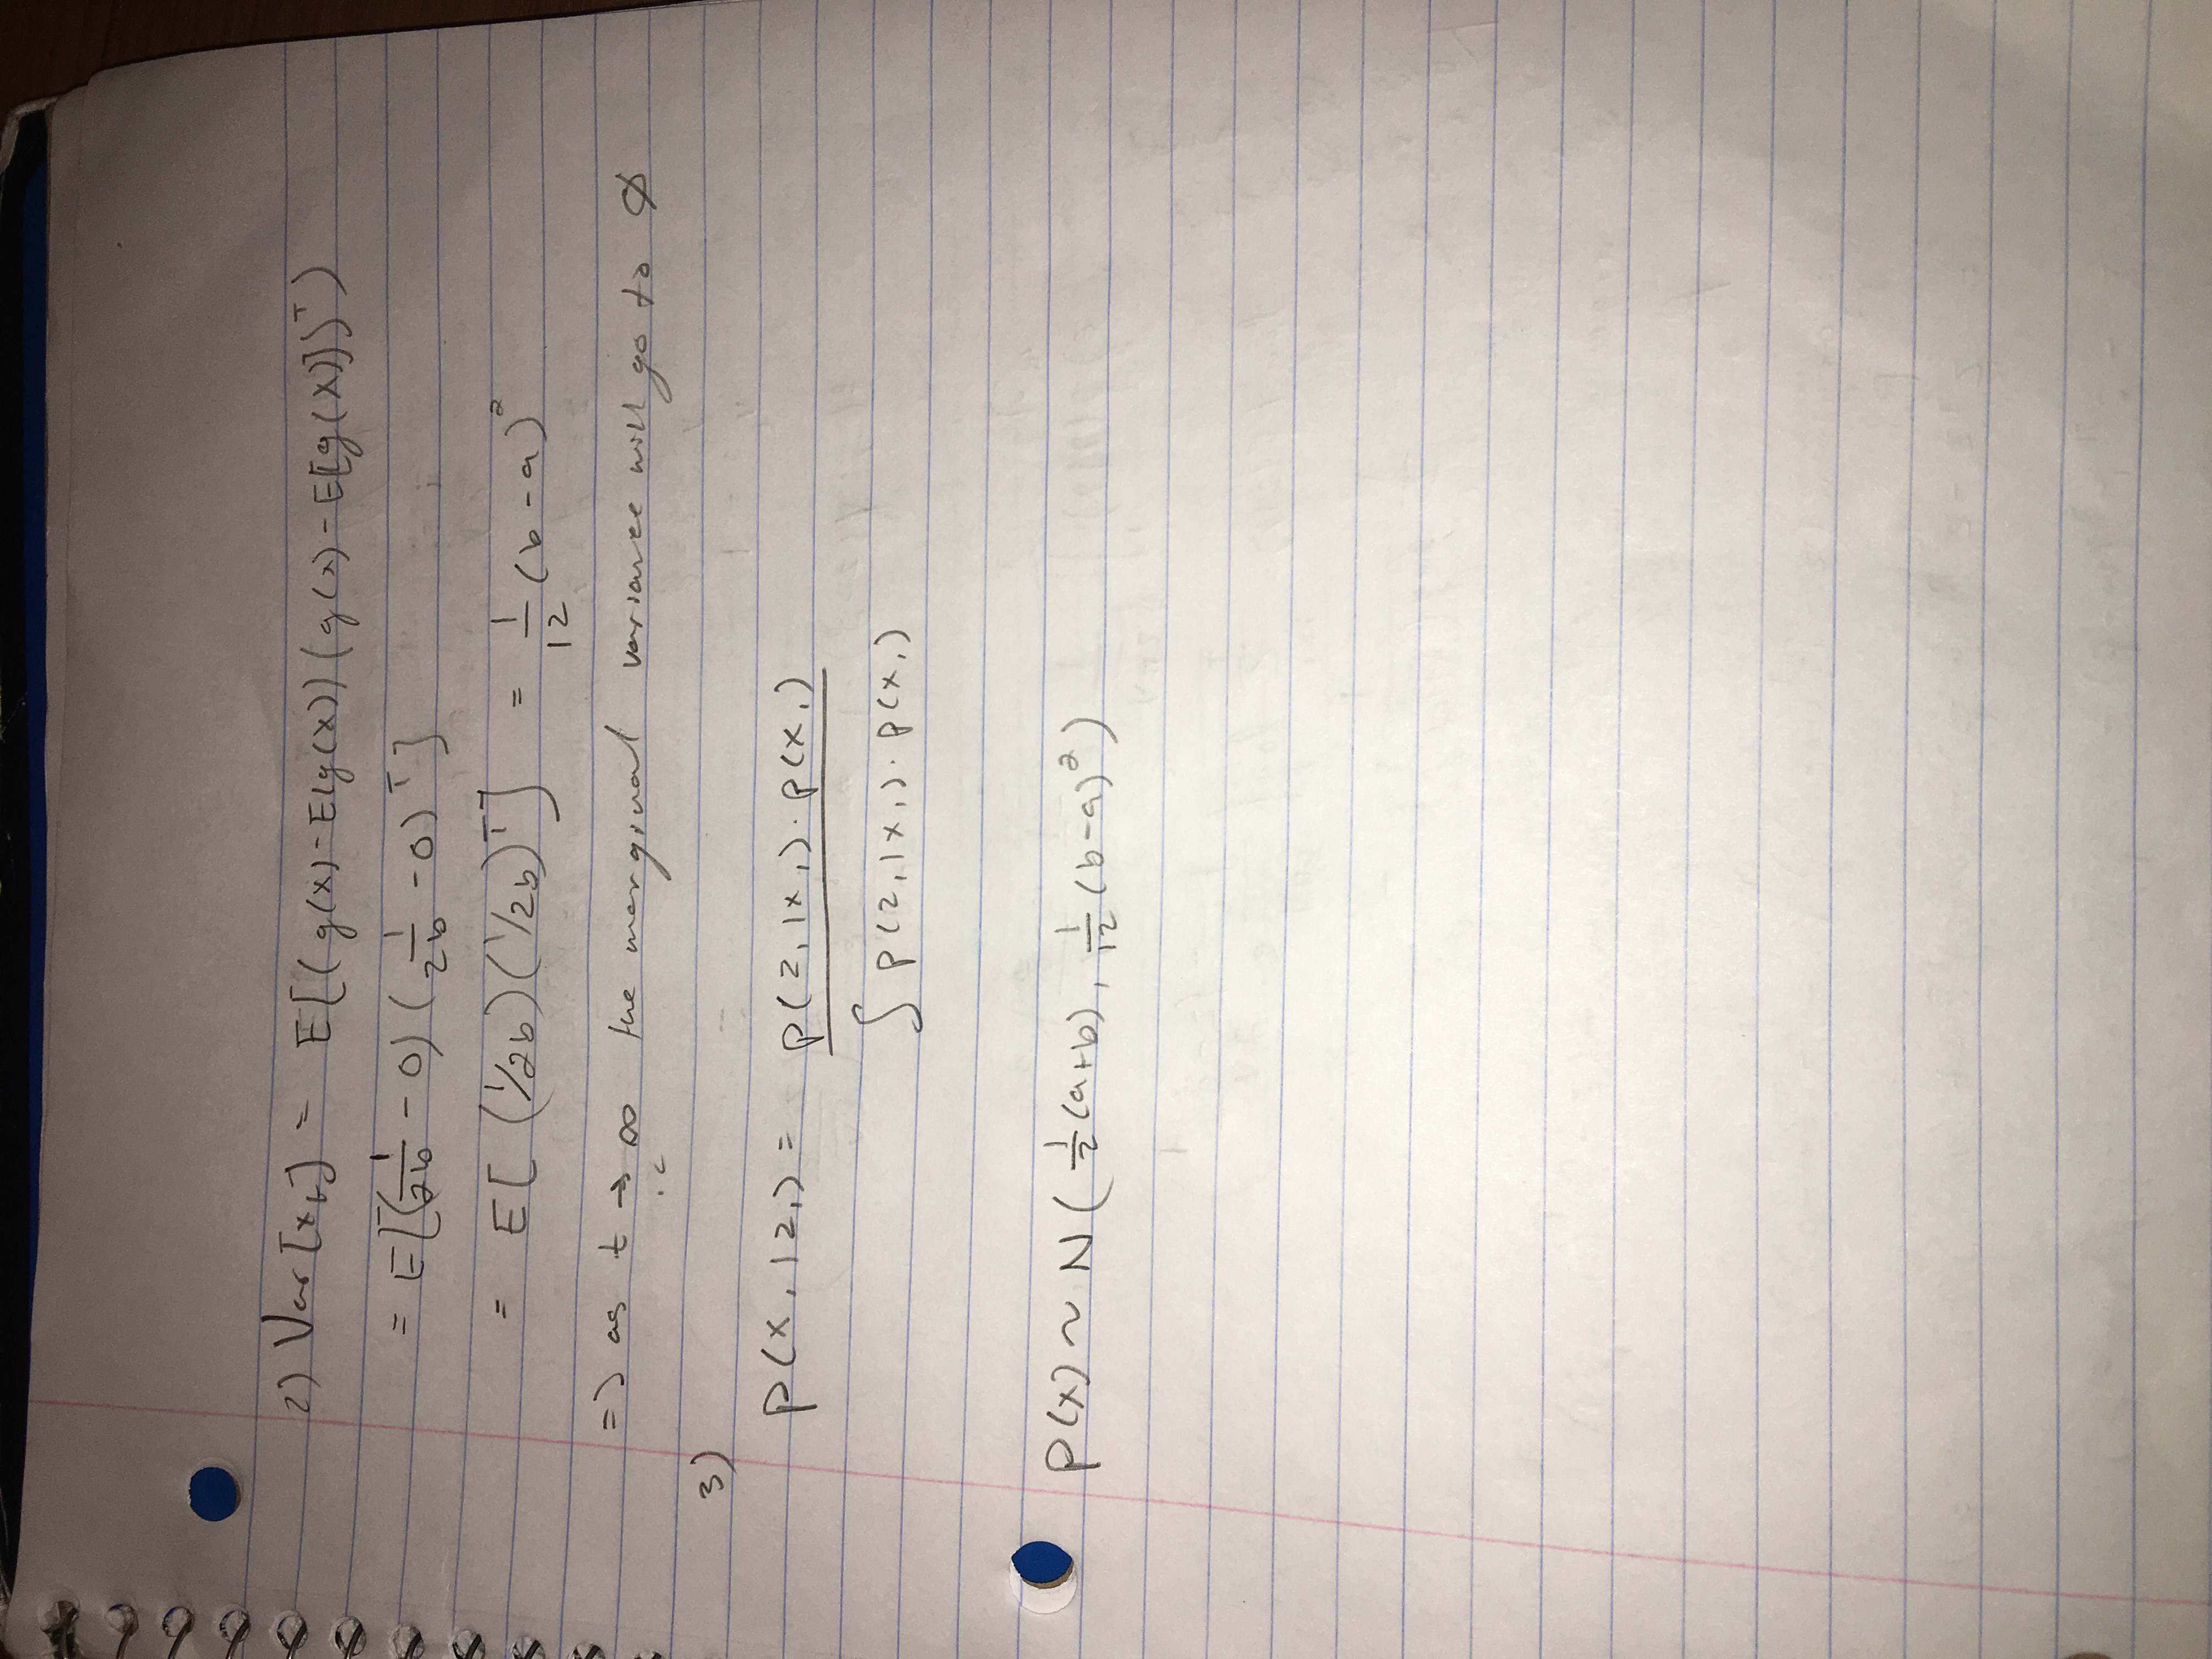 2) Var [x_t] = E[(g(x) - E(g(x)) (g(x) - E[g(x)]])^T)
= E[(1/2b - 0) (1/2b - 0)^T]
= E[ (1/2b)(1/2b)^T] = 1/12 (b-a)^2
=> as t → ∞ the marginal variance will go to ∅
3)
p(x_1|z_1) = p(z_1|x_1) · p(x_1)
∫ p(z_1|x_1) · p(x_1)
p(x) ~ N( 1/2 (a+b), 1/12 (b-a)^2 )